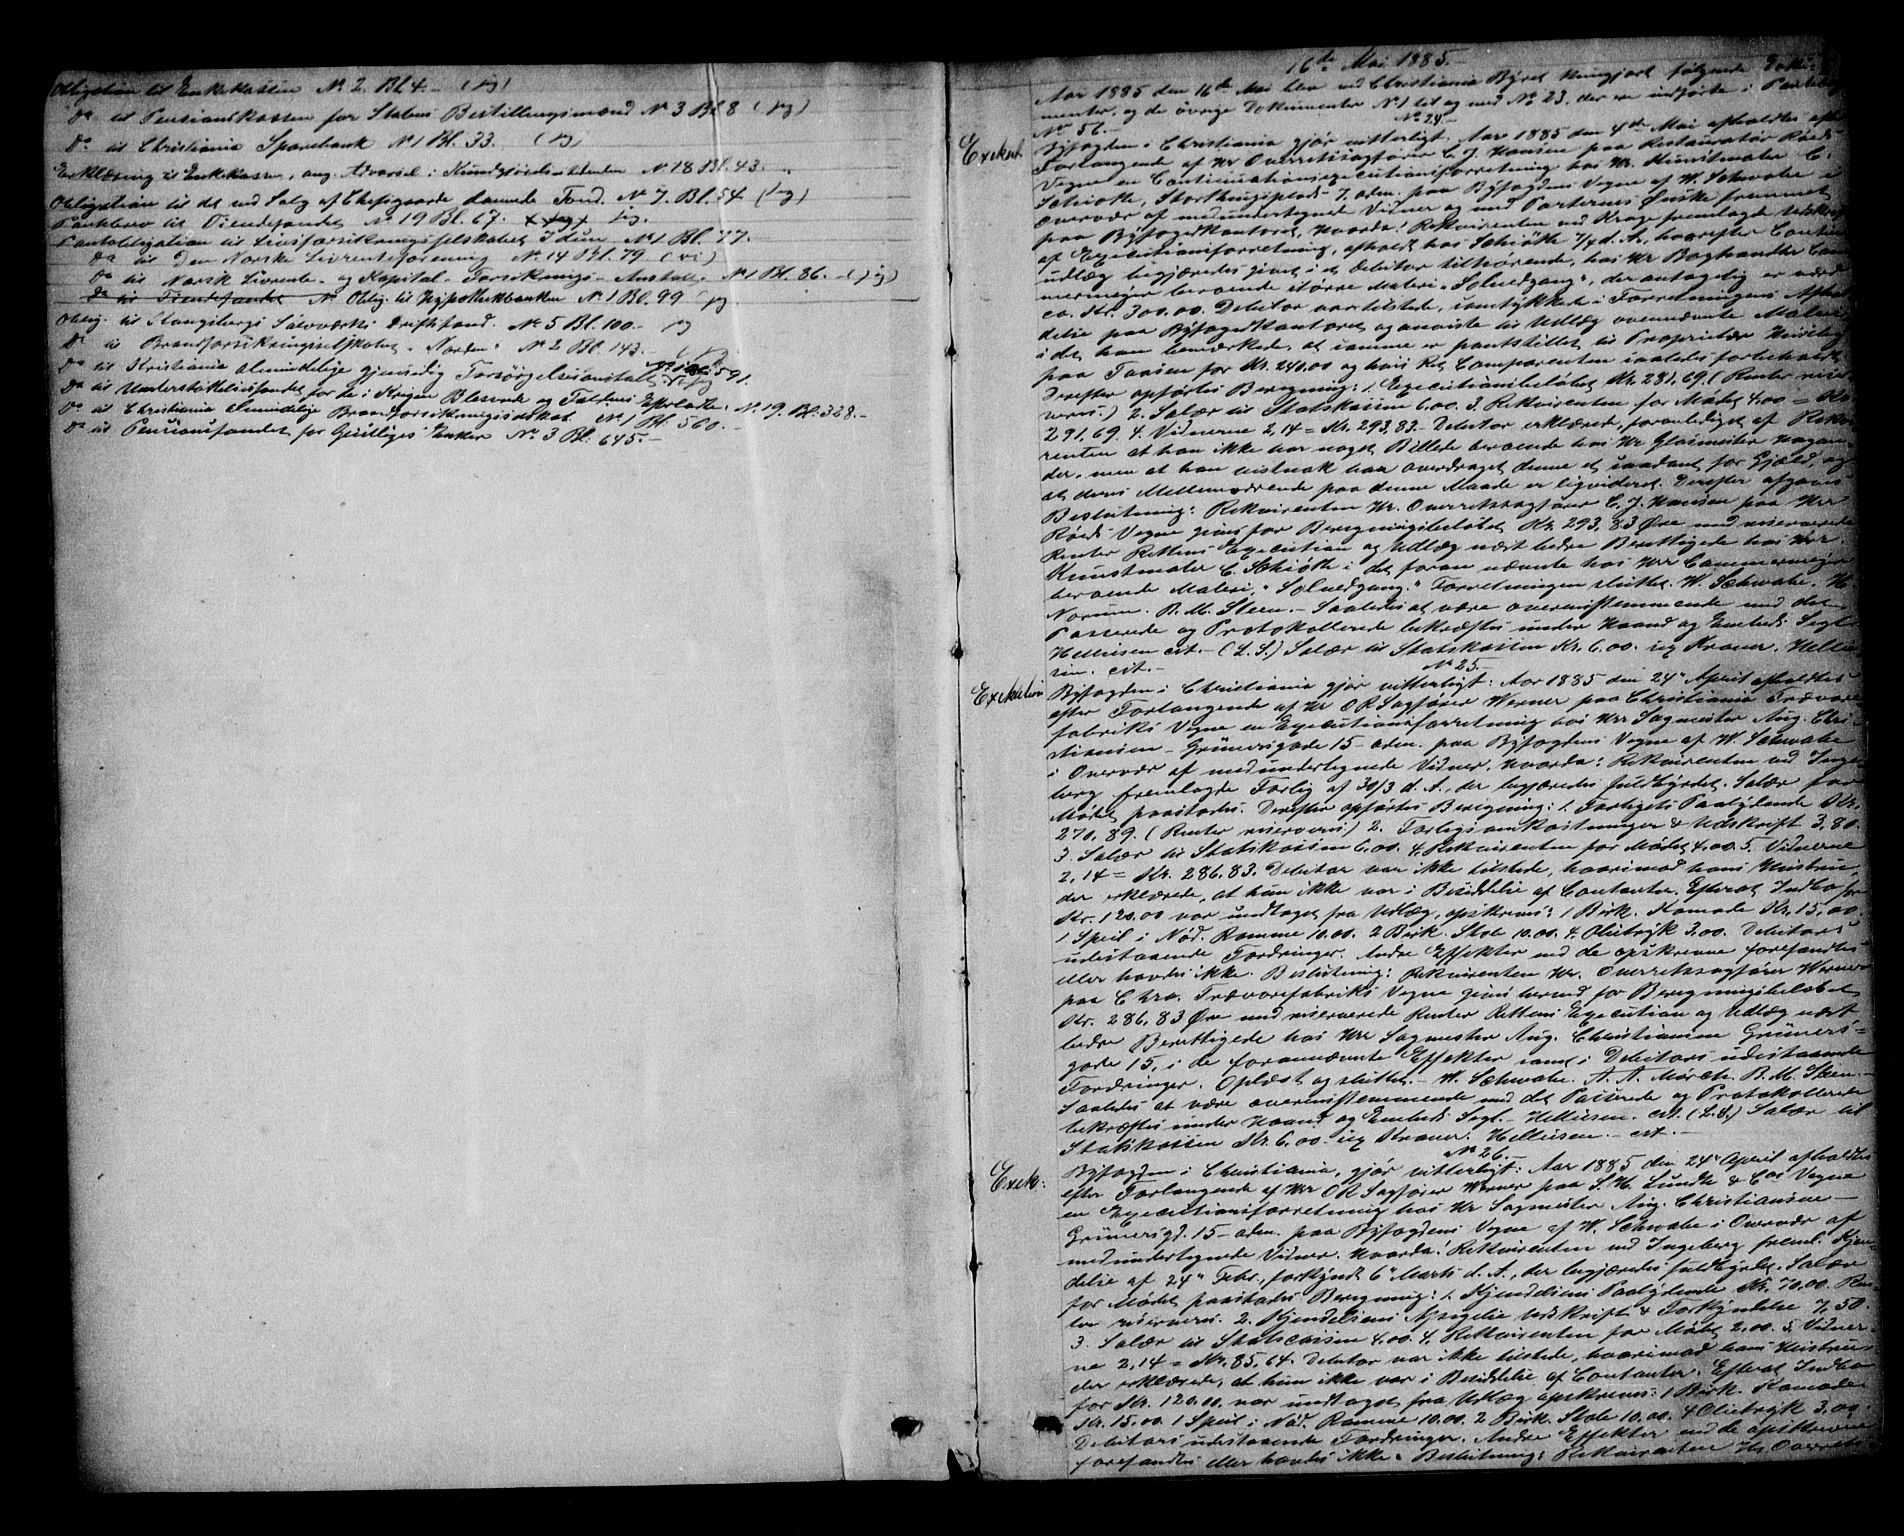 Obligation til Enkekassen No 2. Bl 4. (jg)
Do til Pensionskassen for Statens Bestillingsmænd No 3 Bl 8 (jg)
Do til Christiania Sparebank No 1 Bl. 33. (jg)
Erklæring til Enkekassen, ang. Advarsel i Kundgjørelsestidenden No 18 Bl. 43.
Obligation til det ved Salg af Chefsgaarde dannede Fond. No 7. Bl. 54 (jg)
Pantebrev til Tiendefondet No 19 Bl. 67. jg.
Pantobligation til Livsforsikringsselskabet Idun No 1 Bl. 77.
Do til Den Norske Livrenteforening No 14 Bl. 79 (vi)
Do til Norsk Livrente- og Kapital-Forsikrings-Anstalt No 1 Bl. 86. (jg)
Do til Tiendefondet No Oblig. til Hypothekbanken No 1 Bl. 99 jg
Oblig. til Kongsbergs Sølvværks Driftsfond. No 5 Bl. 100. jg
Do til Brandforsikringsselskabet "Norden" No 2 Bl. 143.
Do til Kristiania almindelige gjensidig Forsørgelsesanstalt 591.
Do til Understøttelsesfondet for de i Krigen Blesserede og Faldnes Efterladte. No 19. Bl. 328.
Do til Christiania Almindelige Brandforsikringsselskab No 1 Bl. 560.
Do til Pensionsfondet for Geistliges Enker No 3 Bl. 645.
16de Mai 1885.
Aar 1885 den 16de Mai blev ved Christiania Byret kungjort følgende Doku-
menter, og de øvrige Dokumenter No 1 til og med No 23, der ere indførte i Pantebog
No 56.
No 24.
Exekut.
Byfogden i Christiania gjør vitterligt: Aar 1885 den 4de Mai afholdtes efter
Forlangende af Hr Overretssagfører C. J. Hansen paa Restauratør Røeds
Vegne en Continuationsexecutionsforretning hos Hr. Kunstmaler C.
Schiøth, Storthingsplads 7, adm. paa Byfogdens Vegne af W. Schwabe i
Overvær af medundertegnede Vidner og med Parternes Ønske fremmet
paa Byfogedkontoret, Hvorda: Rekvirenten ved Krage fremlagde Udskrift
af Executionsforretning, afholdt hos Schiøth 7/4 d. A., hvorefter Contin
udlæg begjæredes givet i et Debitor tilhørende, hos Hr Boghandler Cam
mermeyer beroende større Maleri "Solnedgang", der antagelig er værd
ca. Kr. 300.00. Debitor var tilstede, samtykket i Forretningens Afhol-
delse paa Byfogedkontoret og anviste til Udlæg ovennævnte Maleri
idet han bemærkede, at samme er pantstillet til Proprietær Huseby
paa Taasen for Kr. 240.00 og hans Ret Comparenten saaledes forbeholdt
Derefter opførtes Beregning: 1. Executionsbeløbet Kr. 281.69. (Renter reser-
veres.) 2. Salær til Statskassen 6.00. 3. Rekvirenten for Mødet 4.00 = Kr
291.69. 4. Vidnerne 2,14 = Kr. 293.83. Debitor erklærede, foranlediget af Rekvi-
renten at han ikke har noget Billede beroende hos Hr Glasmester
der, men at han vistnok har overdraget denne et saadant for Gjæld, og
at deres Mellemværende paa denne Maade er ligvideret. Derefter afgaves
Beslutning: Rekvirenten Hr. Overretssagfører C. J. Hansen paa Hr
Røeds Vegne gives for Beregningsbeløbet Kr. 293.83 Øre med reserverede
Renter Rettens Execution og Udlæg næst bedre Berettigede hos Hr.
Kunstmaler C. Schiøth i det foran nævnte hos Hr Cammermeyer
beroende Maleri, "Solnedgang." Forretningen sluttet. W. Schwabe. H.
Norum. B. M. Steen. – Saaledes at være overensstemmende med det
Passerede og Protokollerede bekræftes under Haand og Embeds Segl.
Helliesen cst. – (L. S.) Salær til Statskassen Kr. 6.00. sex Kroner. Hellie-
sen. cst. –
No 25. –
Exekution
Byfogden i Christiania gjør vitterligt: Aar 1885 den 24 April afholdtes
efter Forlangende af Hr O R Sagfører Werner paa Christiania Trævare-
fabriks Vegne en Executionsforretning hos Hr Sagmester Aug. Chri-
stiansen – Grünersgade 15 – adm. paa Byfogdens Vegne af W. Schwabe
i Overvær af medundertegnede Vidner, Hvorda: Rekvirenten ved Inge-
berg fremlagde Forlig af 30/3 d. A., der begjæredes fuldbyrdet. Salær for
Mødet paastodes. Derefter opførtes Beregning: 1. Forligets Paalydende Kr.
270.89. (Renter reserveres) 2. Forligsomkostninger & Udskrift 3.80.
3. Salær til Statskassen 6.00. 4. Rekvirenten for Mødet 4.00. 5. Vidnerne
2,14 = Kr. 286.83. Debitor var ikke tilstede, hvorimod hans Hustru,
der erklærede, at hun ikke var i Besiddelse af Contanter. Efterat Indbo for
Kr. 120.00 var undtaget fra Udlæg, opskreves: 1 Birk. Komode Kr. 15.00.
1 Speil i Nød. Ramme 10.00. 2 Birk. Stole 10.00. 4 Olietryk 3.00. Debitors
udestaaende Fordringer. Andre Effekter end de opskrevne forefandtes
eller havdes ikke. Beslutning: Rekvirenten Hr. Overretssagfører Werner
paa Chra. Trævarefabriks Vegne gives herved for Beregningsbeløbet
Kr. 286.83 Øre med reserverede Renter Rettens Execution og Udlæg næst
bedre Berettigede hos Hr Sagmester Aug. Christiansen Grüners-
gade 15, i de forannævnte Effekter samt i Debitors udestaaende
Fordringer. Oplæst og sluttet. – W. Schwabe. A. A. Mørch. B. M. Steen. –
Saaledes at være overensstemmende med det Passerede og Protokollerede
bekræftes under Haand og Embeds Segl. – Helliesen. cst. (L.S.) Salær til
Statskassen Kr. 6.00. sex Kroner. Helliesen. – cst. –
No 26. –
Exek:
Byfogden i Christiania, gjør vitterligt: Aar 1885 den 24 April afholdtes
efter Forlangende af Hr O R Sagfører Werner paa S. H. Lundh & Cos Vegne
en Executionsforretning hos Hr Sagmester Aug. Christiansen –
Grünersgd. 15 – adm. paa Byfogdens Vegne af W. Schwabe i Overvær af
medundertegnede Vidner. Hvorda: Rekvirenten ved Ingeberg freml. Kjen-
delse af 24 Febr., forkyndt 6 Marts d. A., der begjæredes fuldbyrdet. Salær
for Mødet paastodes Beregning: 1. Kjendelsens Paalydende Kr. 70.00. Ren-
ter reserveres. 2. Kjendelsens Afsigelse Udskrift & Forkyndelse 7,50.
3. Salær til Statscassen 4.00. 4. Rekvirenten for Mødet 2.00. 5. Vidner-
ne 2,14 = Kr. 85,64. Debitor var ikke tilstede, hvorimod hans Hustru
der erklærede, at hun ikke var i Besiddelse af Contanter. Efterat Indbo
for Kr. 120.00. var undtaget fra Udlæg opskreves: 1 Birk. Komode
Kr. 15.00. 1 Speil i Nød. Ramme 10.00. 2 Birk. Stole 10.00. 4 Olietryk 3.00.
Debitors udestaaende Fordringer. Andre Effekter end de opskrevne
forefandtes eller havdes ikke. Beslutning: Rekvirenten Hr. Overrets-